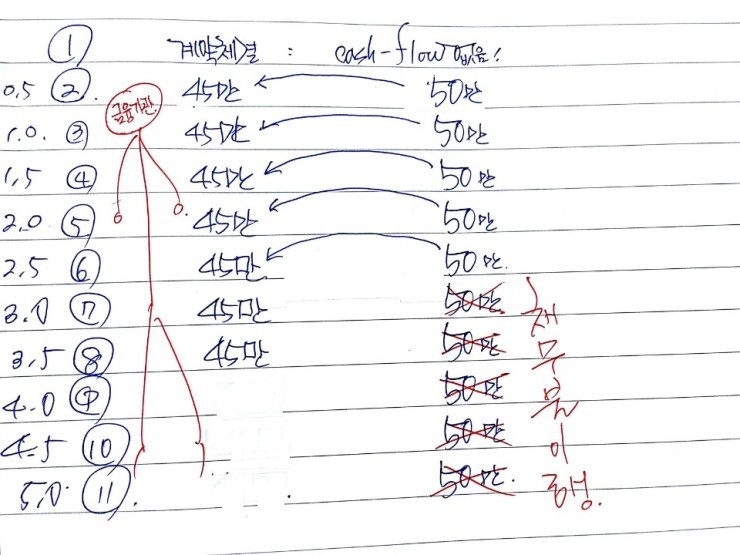 ① 계약체결 : cash-flow 없음!
0.5 ② 45만 50만
금융기관
1.0. ③ 45만 50만
1.5 ④ 45만 50만
2.0 ⑤ 45만 50만
2.5 ⑥ 45만 50만.
3.0 ⑦ 45만 50만
3.5 ⑧ 45만 50만
4.0 ⑨ 50만
4.5 ⑩ 50만
5.0 ⑪ 50만.
채무불이행.